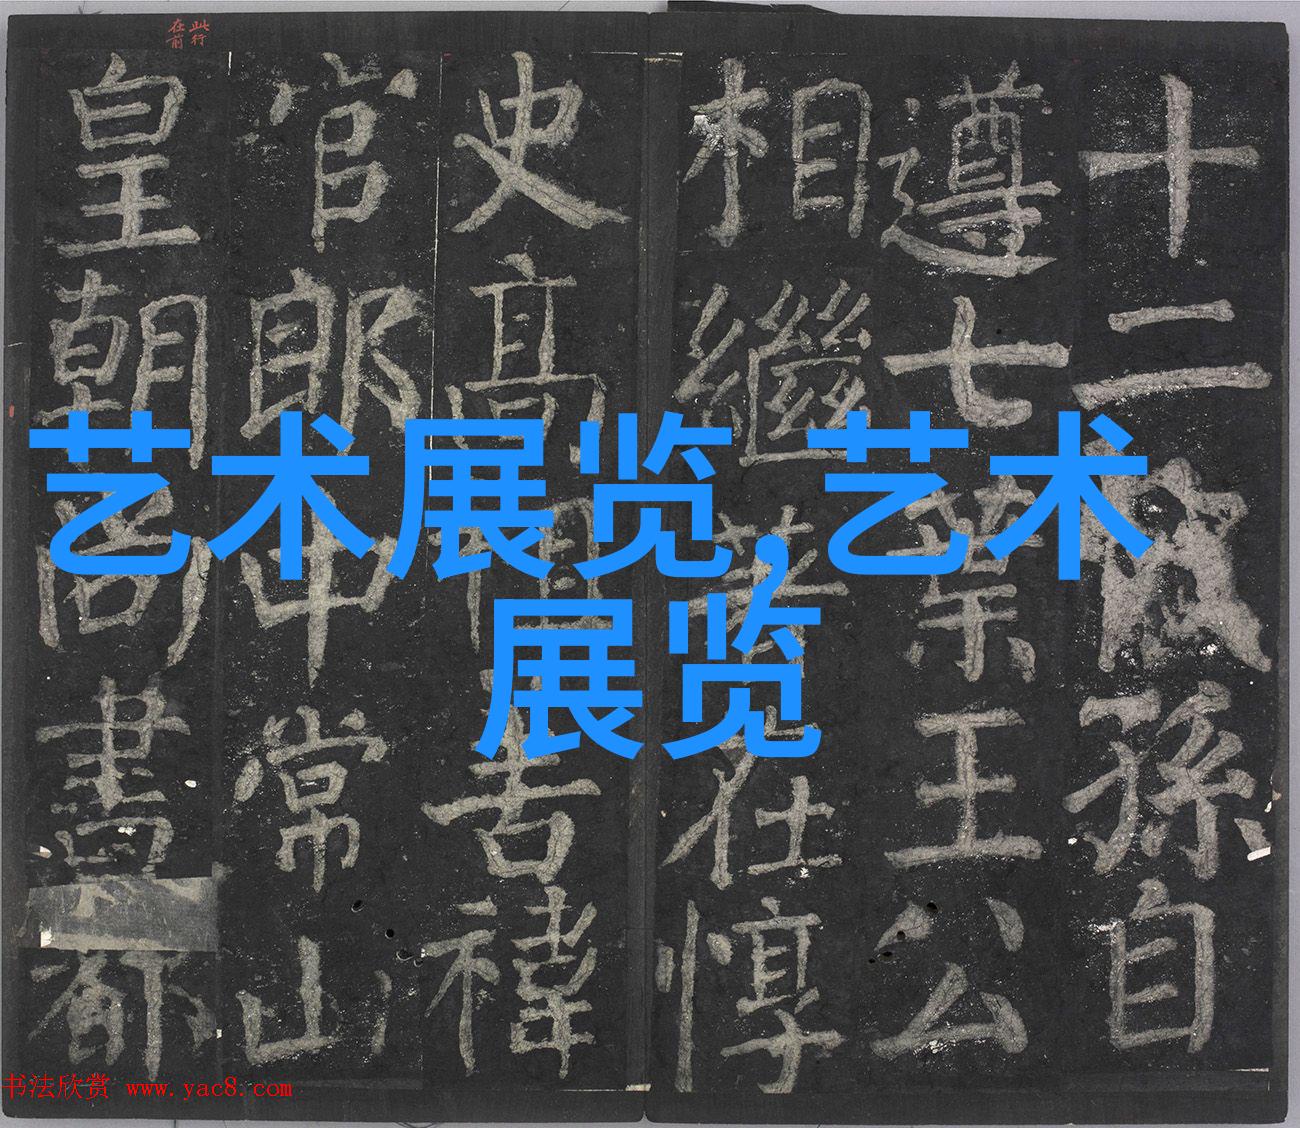 艺术展览,艺术
展览
十二孫自
遵七葉王公
相繼著在惇
史高祖吉褘
皇朝尚書都
官郎中常山
此行
在前
书法欣赏 www.yac8.com